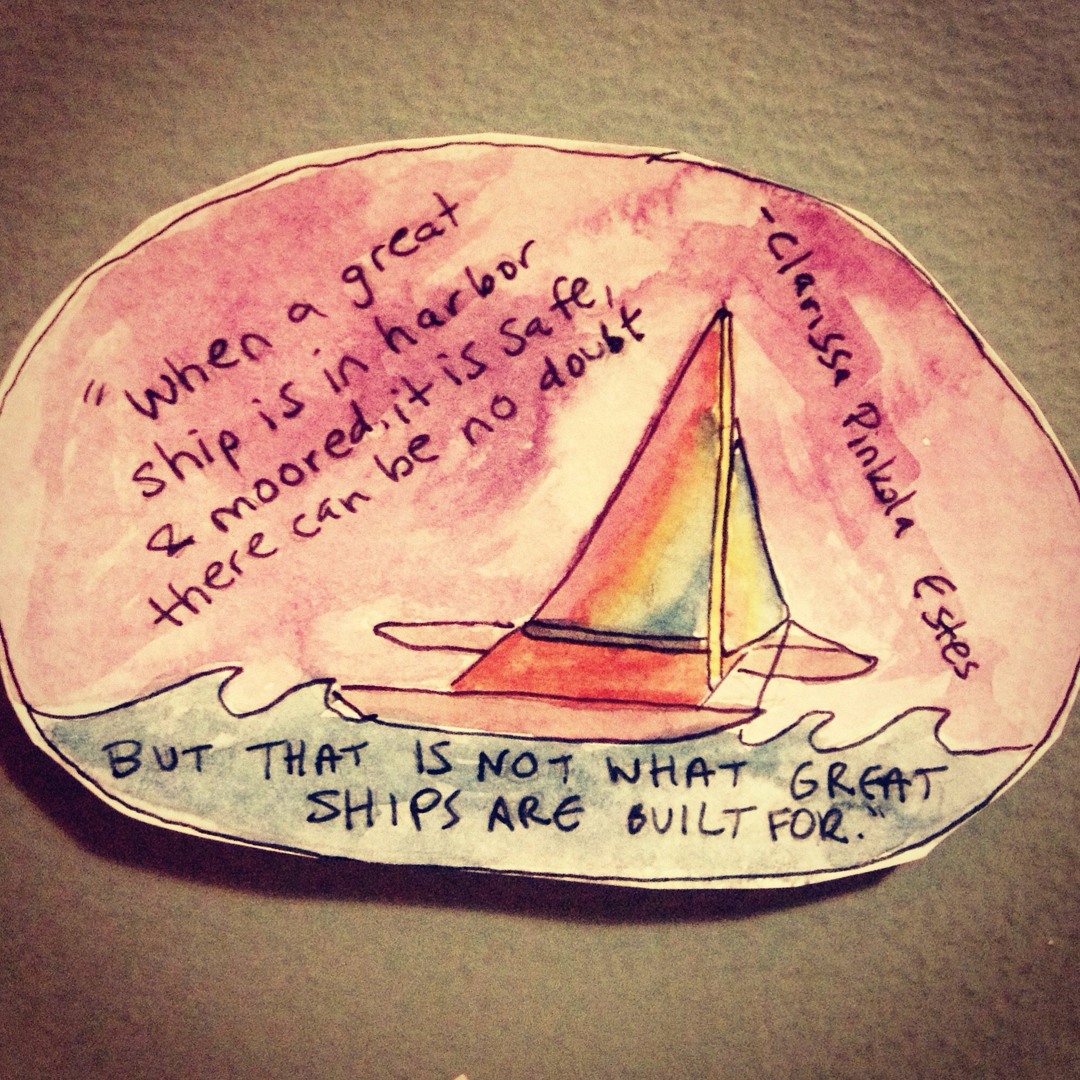 "When a great
ship is in harbor
& moored, it is safe,
there can be no doubt
BUT THAT IS NOT WHAT GREAT
SHIPS ARE BUILT FOR."
-Clarissa Pinkola Estes